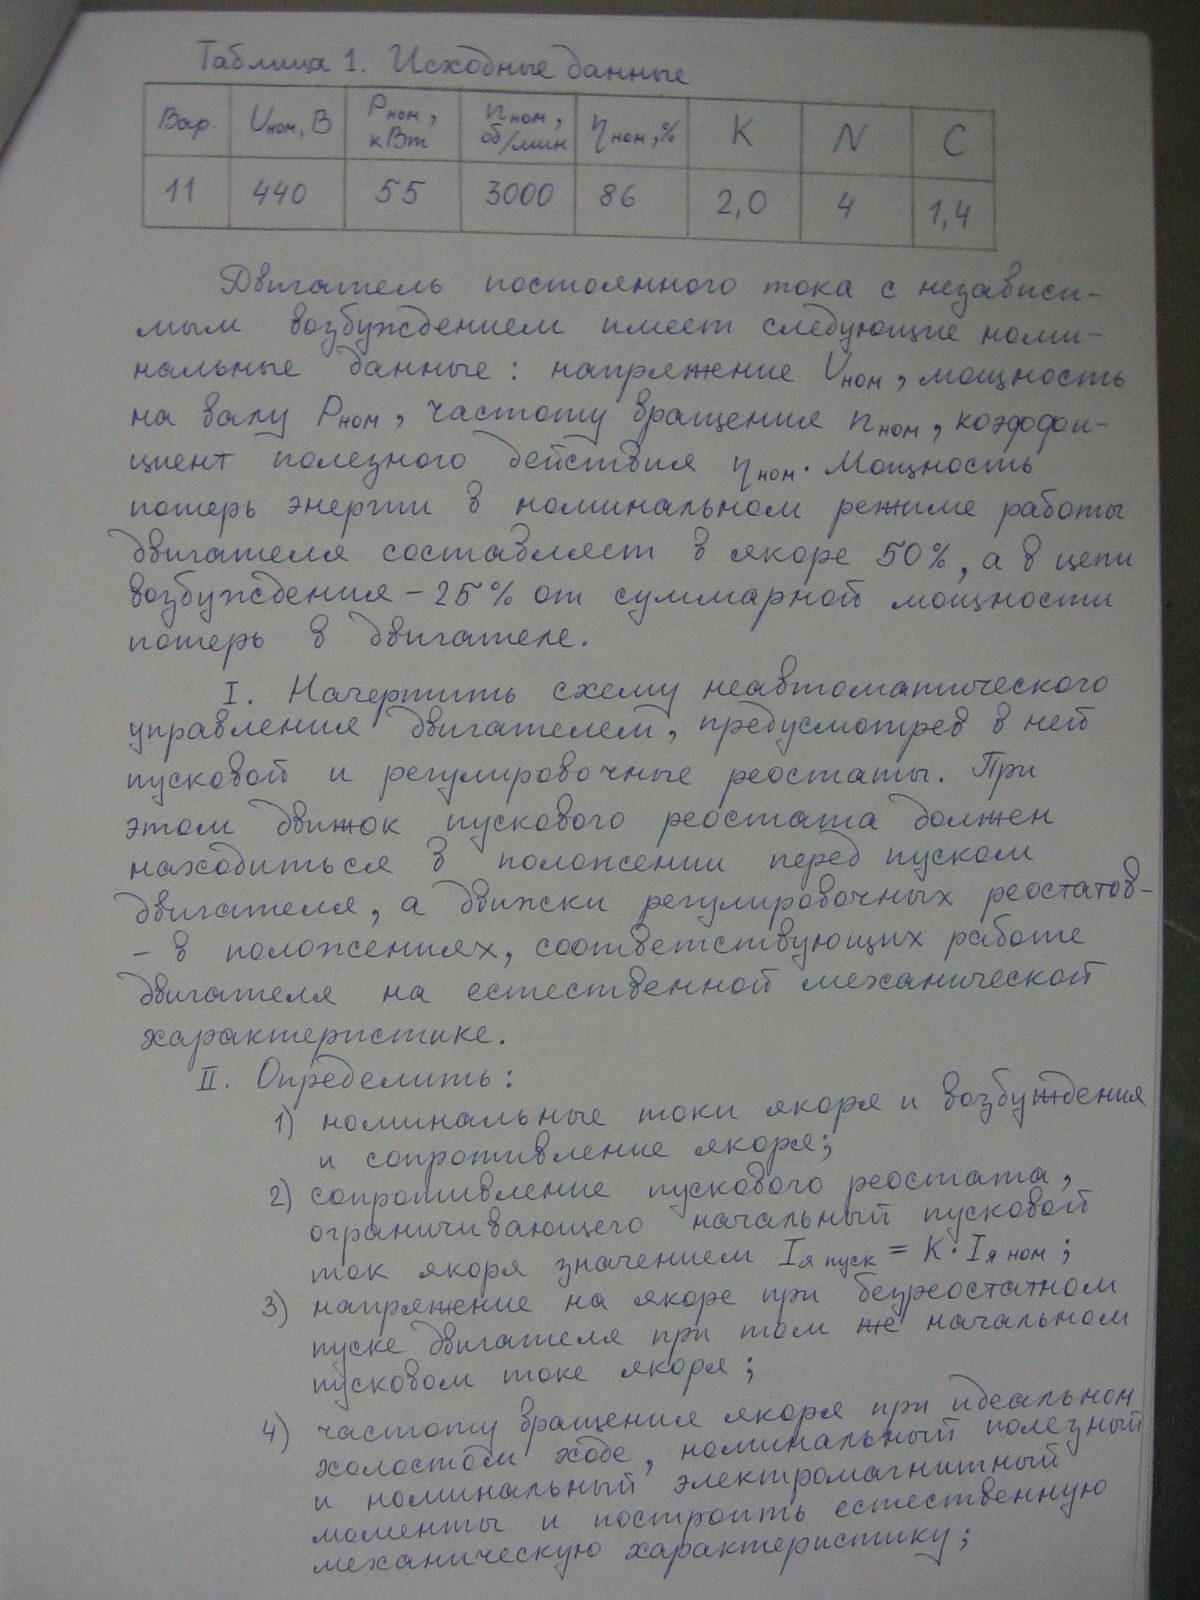 Таблица 1. Исходные данные
Вар. Uном, В Pном, кВт nном, об/мин ηном, % K N C
11 440 55 3000 86 2,0 4 1,4
Двигатель постоянного тока с независи-
мым возбуждением имеет следующие номи-
нальные данные: напряжение Uном, мощность
на валу Pном, частоту вращения nном, коэффи-
циент полезного действия ηном. Мощность
потерь энергии в номинальном режиме работы
двигателя составляет в якоре 50%, а в цепи
возбуждения – 25% от суммарной мощности
потерь в двигателе.
I. Начертить схему неавтоматического
управления двигателем, предусмотрев в ней
пусковой и регулировочные реостаты. При
этом движок пускового реостата должен
находиться в положении перед пуском
двигателя, а движки регулировочных реостатов –
– в положениях, соответствующих работе
двигателя на естественной механической
характеристике.
II. Определить:
1) номинальные токи якоря и возбуждения
и сопротивление якоря;
2) сопротивление пускового реостата,
ограничивающего начальный пусковой
ток якоря значением Iя пуск = K · Iя ном;
3) напряжение на якоре при безреостатном
пуске двигателя при том же начальном
пусковом токе якоря;
4) частоту вращения якоря при идеальном
холостом ходе, номинальный полезный
и номинальный электромагнитный
моменты и построить естественную
механическую характеристику;